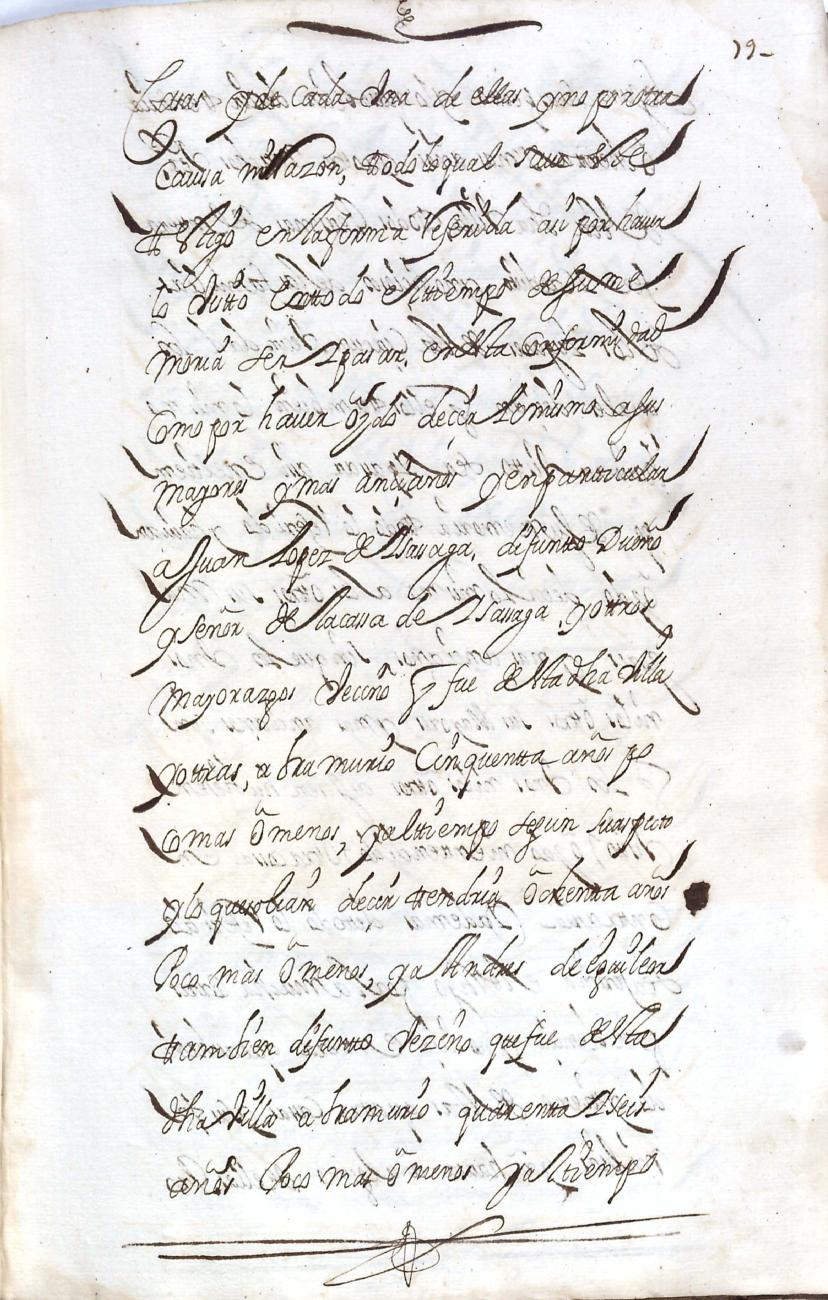 19-
Casas y de cada Vna de ellas y no por otra
Causa ni Razon, todo lo qual save este
tt.º en la forma Referida asi por haver
lo Visto en todo el tiempo de su me
moria ser y pasar, en esta Conformidad
Como por haver oydo decir lo mismo a sus
mayores y mas ancianos y en particular
a Juan Lopez de Ysasaga, difunto Dueño
y Señor de la cassa de Ysasaga, y otros
mayorazgos Vecino q fue de esta dha Villa
y otras, abra murio Cinquenta años po
co mas ô menos, y al tiempo segun su aspecto
y lo que solian decir tendria Ochenta años
Poco mas ô menos, y a Andres de
tambien difunto Vezino que fue de esta
dha Villa abra murio quarenta y Seis
años Poco mas ô menos y al tiempo